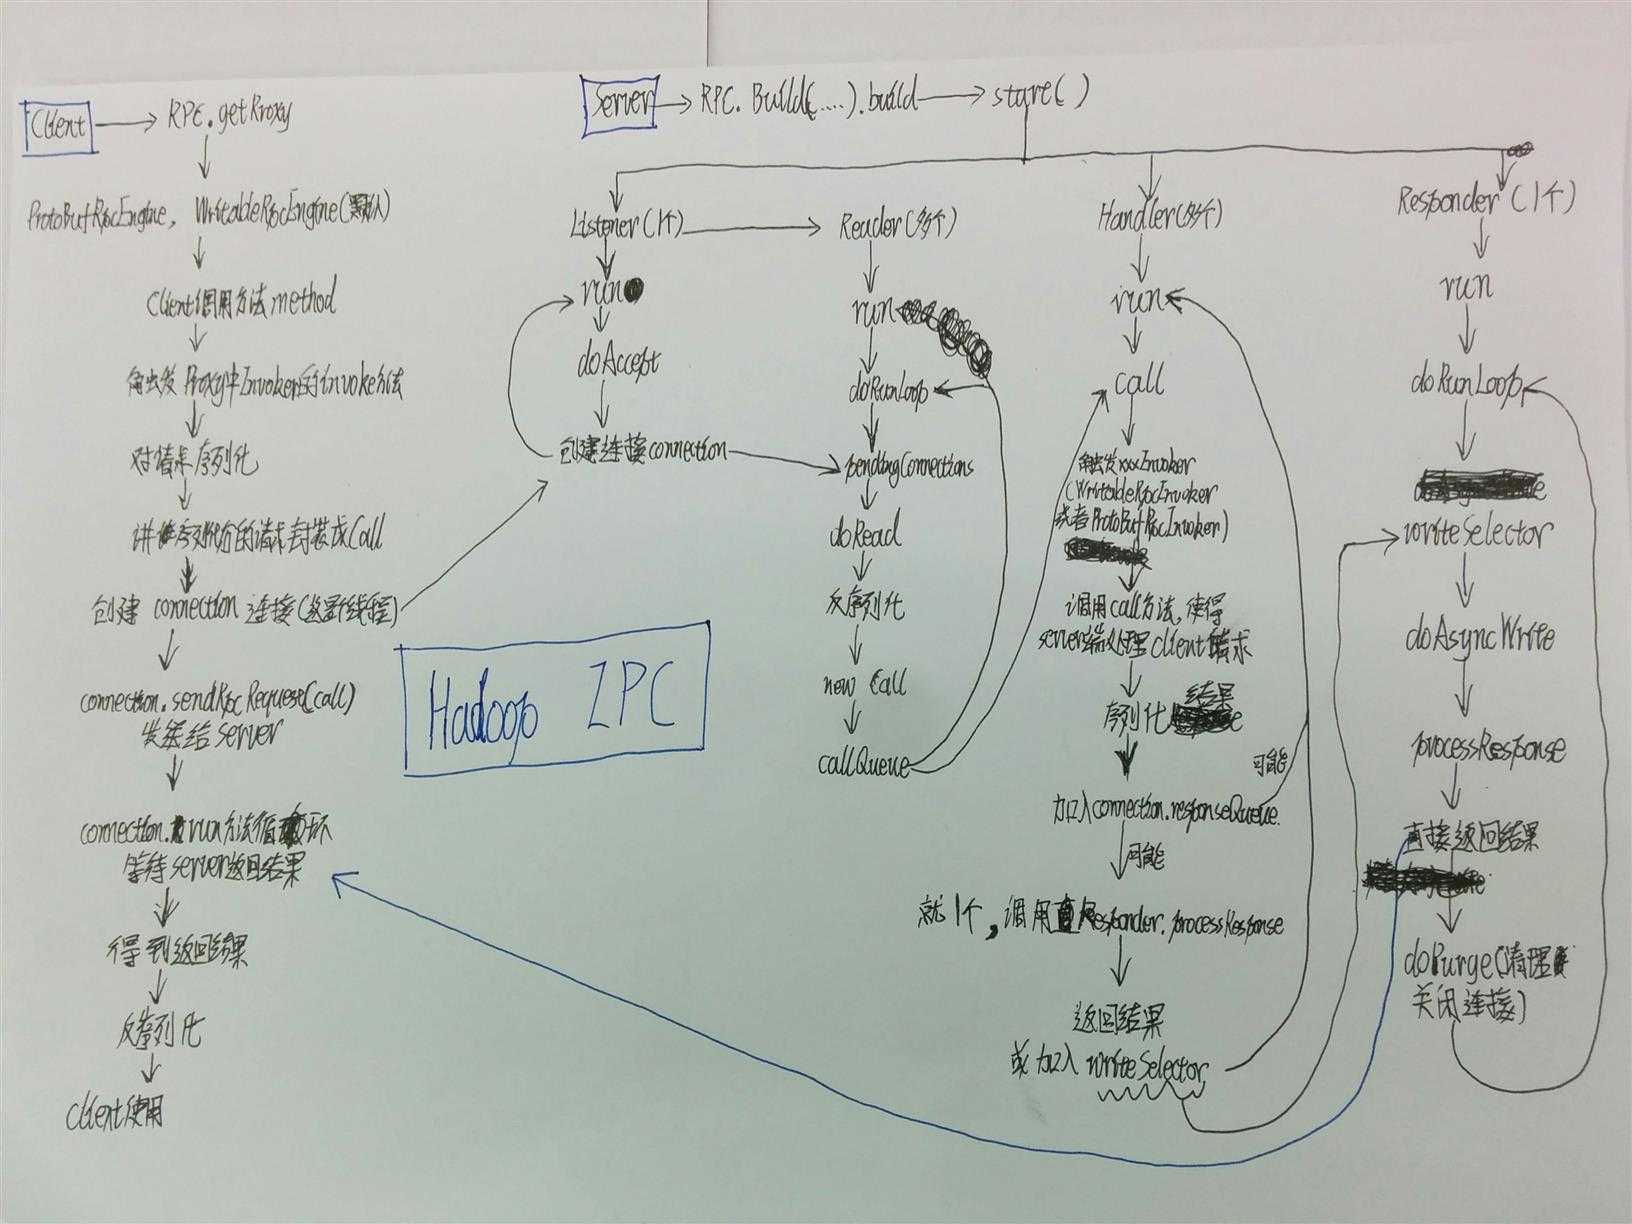 Client
RPC.getProxy
ProtoBufRpcEngine, WritableRpcEngine(默认)
Client调用方法method
触发Proxy中Invoker的invoke方法
对请求序列化
序列化的请求封装成Call
创建 connection 连接(线程)
connection.sendRpcRequest(call)
发送给server
connection.run方法循环
等待server返回结果
得到返回结果
反序列化
Client使用
Hadoop IPC
Server
RPC.Build(....).build
start()
Listener(1个)
run
doAccept
创建连接connection
Reader(多个)
run
doRunLoop
pendingConnections
doRead
反序列化
new Call
callQueue
Handler(多个)
run
call
触发xxxInvoker
(WritableRpcInvoker
或者ProtoBufRpcInvoker)
调用call方法,使得
server端处理client请求
序列化结果
加入connection.responseQueue
可能
可能
就1个,调用Responder.processResponse
返回结果
或加入writeSelector
Responder(1个)
run
doRunLoop
writeSelector
doAsyncWrite
processResponse
直接返回结果
doPurge(清理
关闭连接)